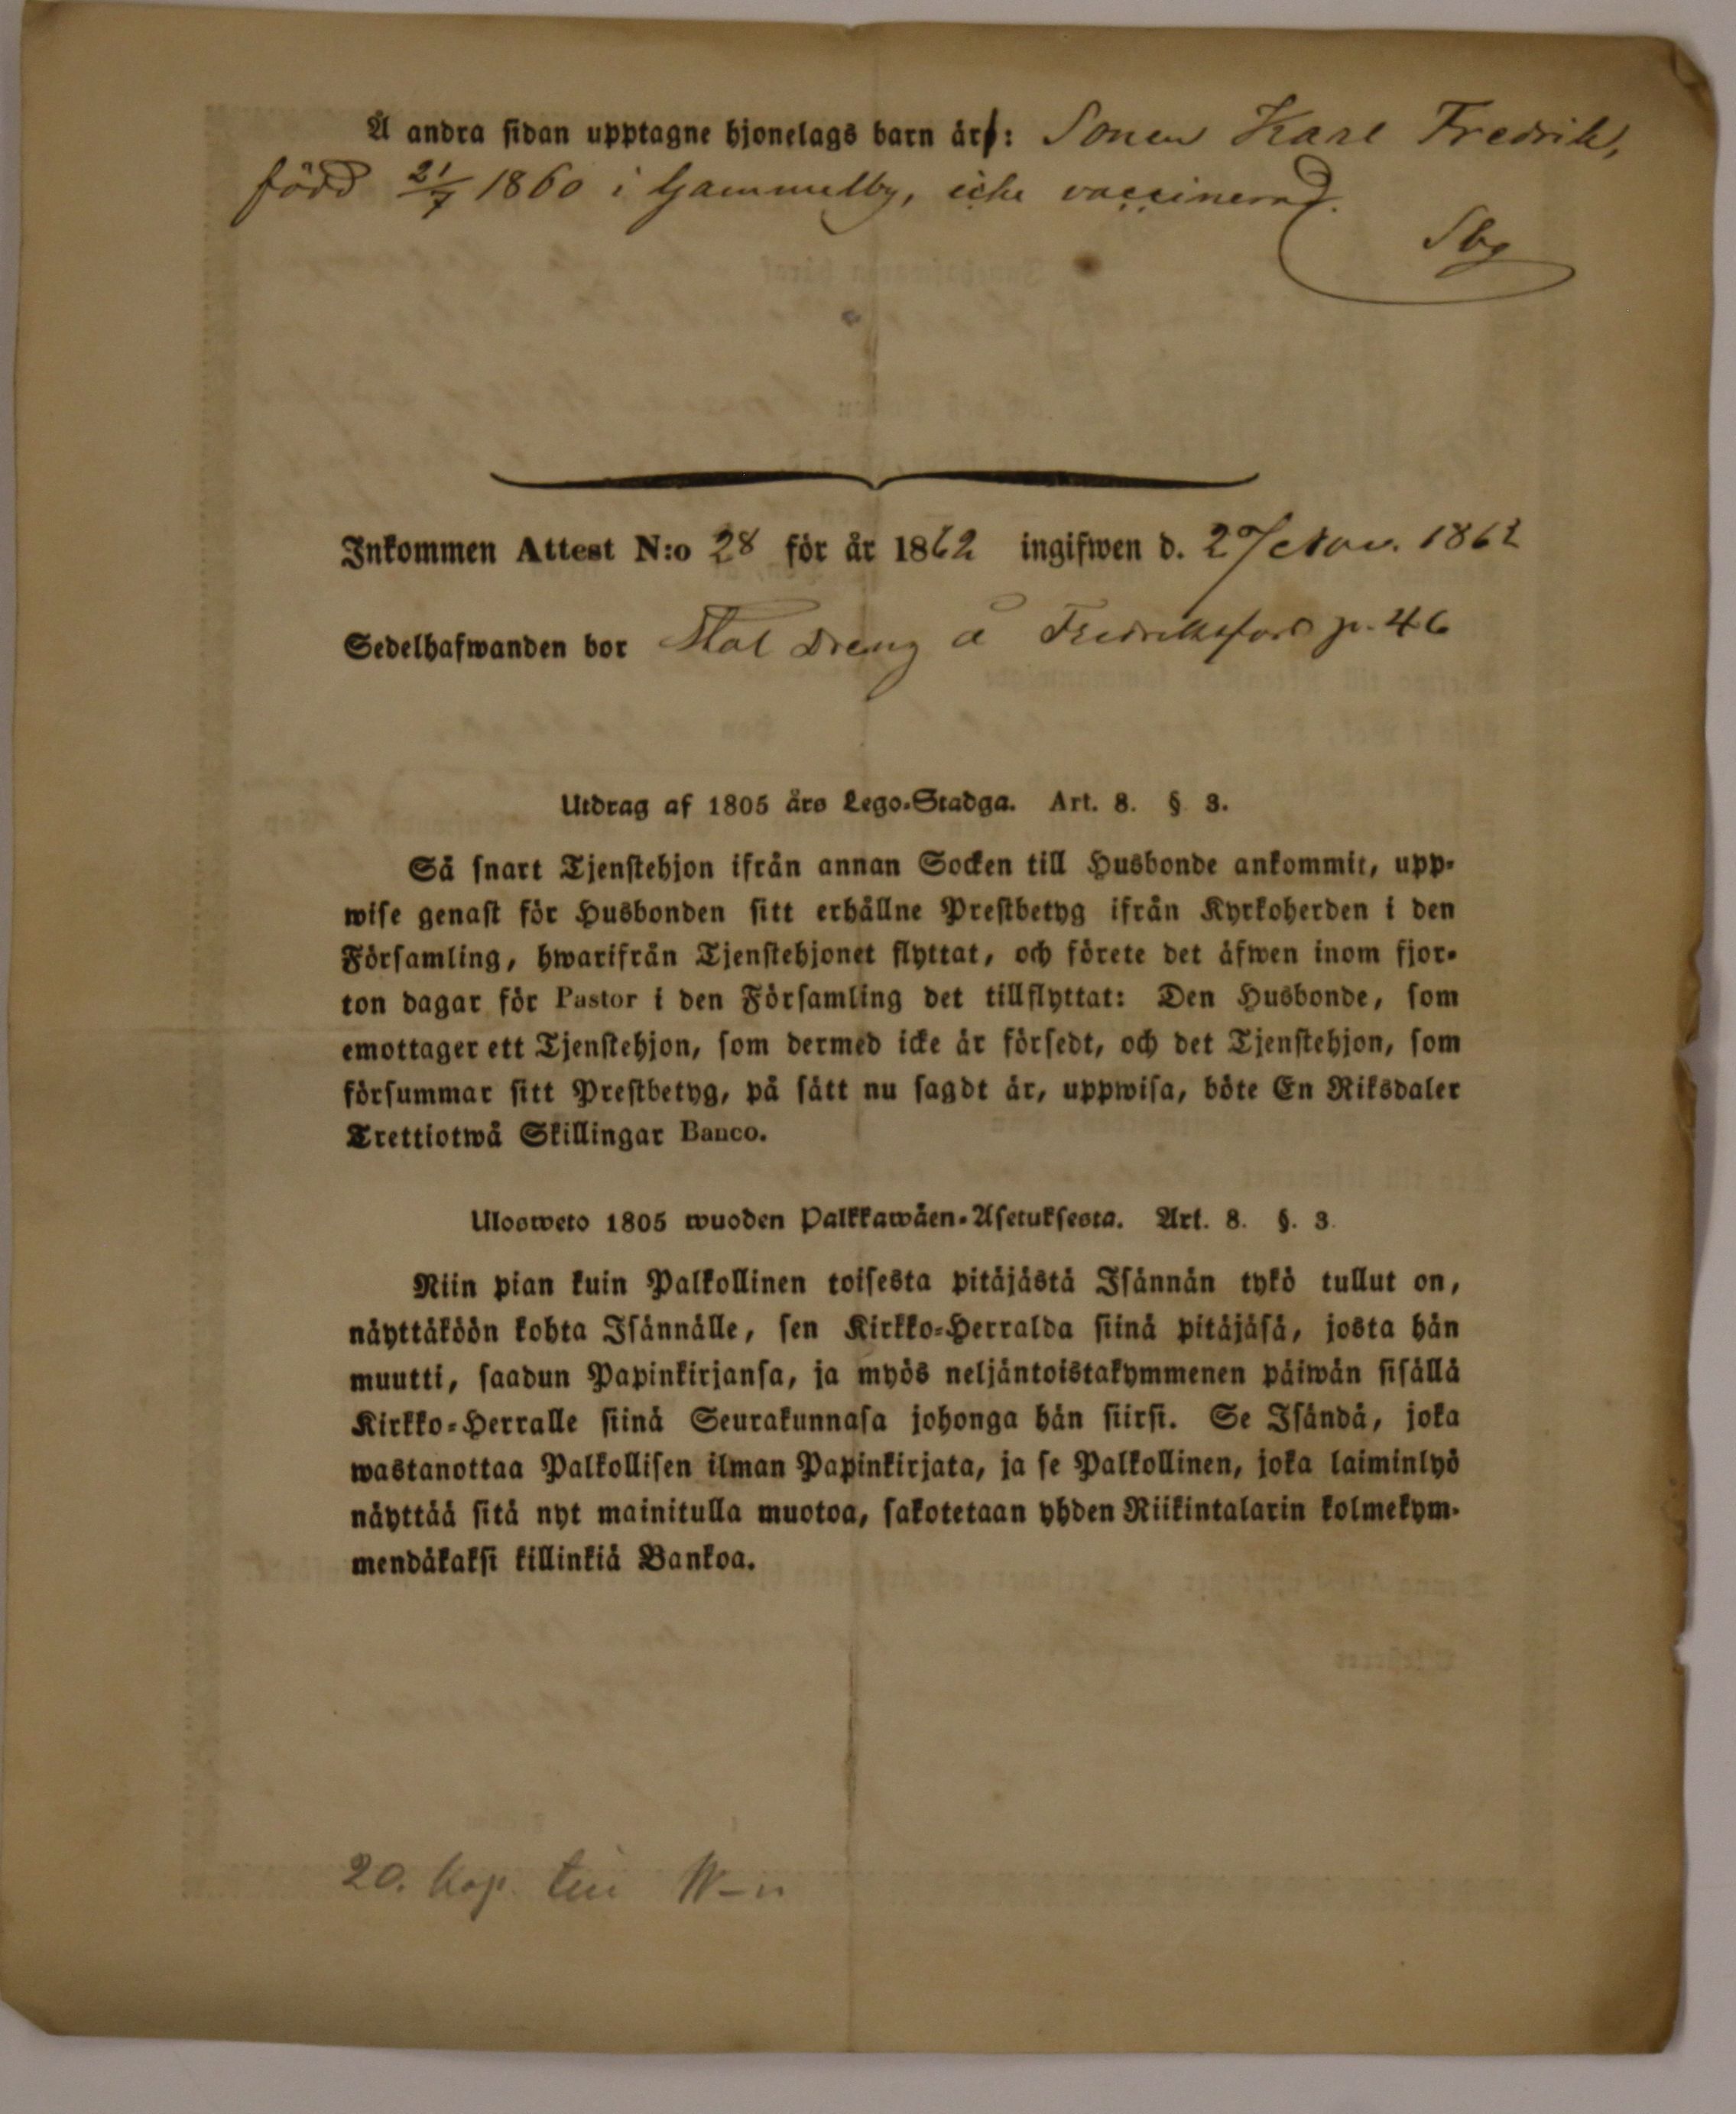 Å andra sidan upptagne hjonelags barn är: Sonen Karl Fredrik,
född 21/7 1860 i Gammelby, icke vaccinerad.
Sbg
Inkommen Attest N:o 28 för år 1862 ingifwen d. 2 Nov. 1862
Sedelhafwanden bor Dreng å Fredriksfors p. 46
Utdrag af 1805 års Lego-Stadga. Art. 8. § 3.
Så snart Tjenstehjon ifrån annan Socken till Husbonde ankommit, upp-
wise genast för Husbonden sitt erhållne Prestbetyg ifrån Kyrkoherden i den
Församling, hwarifrån Tjenstehjonet flyttat, och förete det äfwen inom fjor-
ton dagar för Pastor i den Församling det tillflyttat: Den Husbonde, som
emottager ett Tjenstehjon, som dermed icke är försedt, och det Tjenstehjon, som
försummar sitt Prestbetyg, på sätt nu sagdt är, uppwisa, böte En Riksdaler
Trettiotwå Skillingar Banco.
Ulosweto 1805 wuoden Palkkawäen-Asetuksesta. Art. 8. §. 3.
Niin pian kuin Palkollinen toisesta pitäjästä Isännän tykö tullut on,
näyttäköön kohta Isännälle, sen Kirkko-Herralda siinä pitäjäsä, josta hän
muutti, saadun Papinkirjansa, ja myös neljäntoistakymmenen päiwän sisällä
Kirkko-Herralle siinä Seurakunnasa johonga hän siirsi. Se Isändä, joka
wastanottaa Palkollisen ilman Papinkirjata, ja se Palkollinen, joka laiminlyö
näyttää sitä nyt mainitulla muotoa, sakotetaan yhden Riikintalarin kolmekym-
mendäkaksi killinkiä Bankoa.
20. kop. W-n